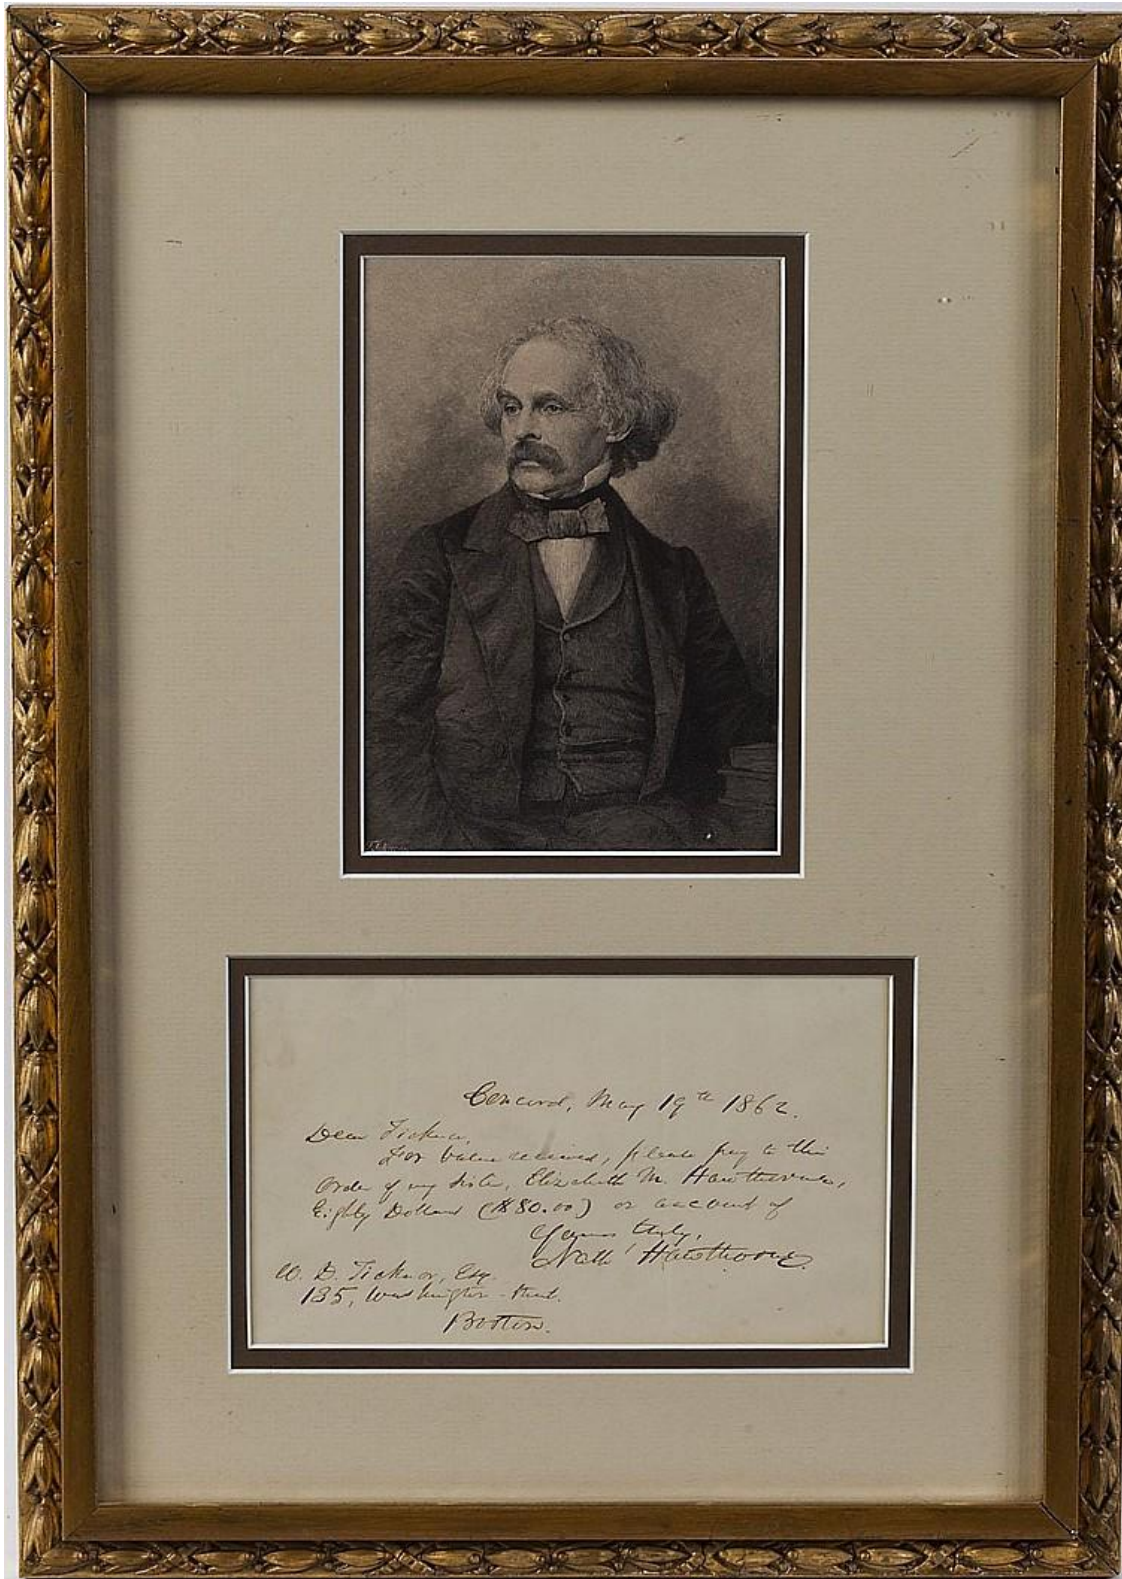 Concord, May 19th 1862.
Dear Ticknor,
For value received, please pay to the
order of my sister, Elizabeth M. Hawthorne,
Eighty Dollars ($80.00) on account of
Yours truly,
Nath' Hawthorne.
W. D. Ticknor, Esq.
135, Washington street.
Boston.